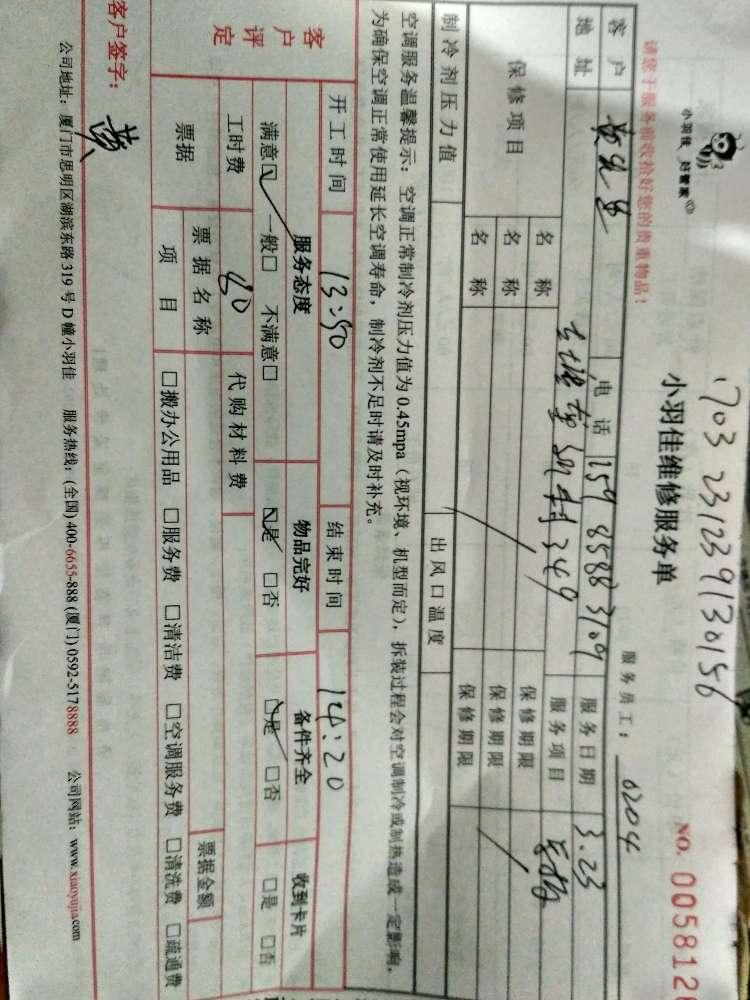 1703 2312391301 56
小羽佳 好管家
小羽佳维修服务单
NO. 005812
请您于服务前收拾好您的贵重物品！
服务员工： 6204
客户 黄先生 电话 159 8588 3109 服务日期 3.23
地址 349 服务项目
保修项目 名称 保修期限
名称 保修期限
名称 保修期限
制冷剂压力值 出风口温度
空调服务温馨提示：空调正常制冷剂压力值为0.45mpa（视环境、机型而定），拆装过程会对空调制冷或制热造成一定影响，
为确保空调正常使用延长空调寿命，制冷剂不足时请及时补充。
开工时间 13:50 结束时间 14:20
客户评定 服务态度 物品完好 备件齐全 收到卡片
满意☑ 一般□ 不满意□ ☑是 □否 ☑是 □否 □是 □否
工时费 80 代购材料费
票据 票据名称 票据金额
项目 □搬办公用品 □服务费 □清洁费 □空调服务费 □清洗费 □疏通费
客户签字： 黄
公司地址：厦门市思明区湖滨东路319号D幢小羽佳 服务热线：(全国) 400-6655-888 (厦门) 0592-5178888 公司网站：www.xiaoyujia.com